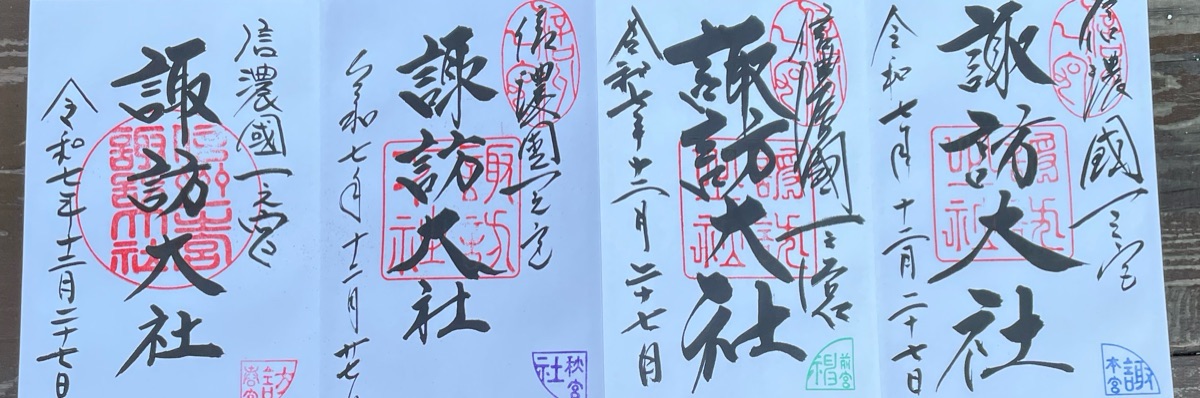 信濃國一之宮
諏訪大社
令和七年十二月二十七日
春宮
信濃國一之宮
諏訪大社
令和七年十二月廿七
諏訪
大社
秋宮
社
信濃國一之宮
諏訪大社
令和七年十二月二十七日
前宮
信濃國一之宮
諏訪大社
令和七年十二月二十七日
諏
本宮